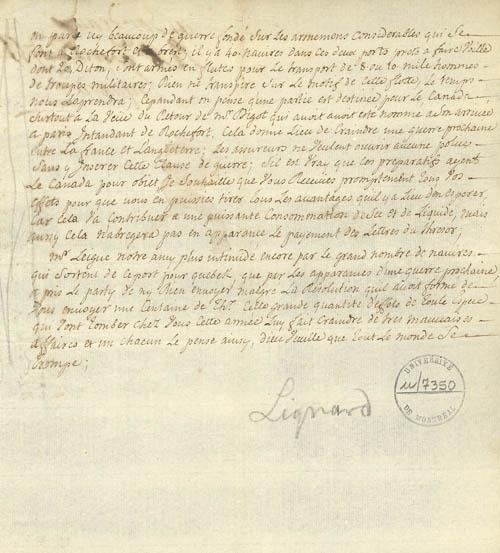 on parle icy beaucoup de guerre fondé Sur Les armemens Considerables qui Se
font a Rochefort et a brest; il y a 40 navires dans ces deux ports prets a faire Voille
dont 20, Diton, Sont armés en flutes pour Le transport de 8 ou 10 mille hommes
de troupes militaires; Rien ne transpire Sur Le motif de Cette flote, Le temps
nous L'aprendra; Cepandant on pense qune partie est destinée pour Le Canada
Surtout a La Veüe du Retour de mr Bigot qui avoit eté nommé a Son arrivée
a paris Intandant de Rochefort, Cela donne Lieu de Craindre une guerre prochaine
entre La france et L'angleterre; Les assureurs ne Veulent ouvrir aucune police
Sans y Inserer Cette Clause de guerre; S'il est Vray que Ces preparatifs ayent
Le Canada pour objet Je Souhaitte que Vous Receviez promptement tous Vos
effets pour que vous en puissiez tirer tous Les avantages qu'il y a Lieu d'en Esperer,
car Cela Va Contribuer a une puissante Consommation de Sec et de Liquide, mais
aussy Cela n'abregera pas en apparance Le payement des Lettres du thresor;
Mr Leigne notre amy plus intimidé encore par Le grand nombre de navires
qui Sortent de Ce port pour quebek, que par Les apparances d'une guerre prochaine,
a pris Le party de ny Rien envoyer malgré La Résolution quil avoit formé de
Vous envoyer une Centaine de Thx. Cette grande quantité d'effets de toute Espece
qui Vont tomber chez Vous Cette année Luy fait Craindre de tres mauvaises
affaires et un chacun Le pense ainsy, dieu Veuille que tout Le monde Se
trompe;
Lignard
UNIVERSITÉ
u/7350
DE MONTRÉAL